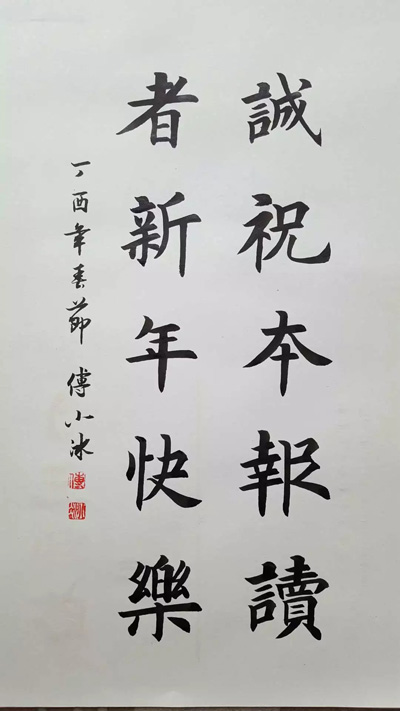 誠祝本報讀
者新年快樂
丁酉年春節 傅小冰